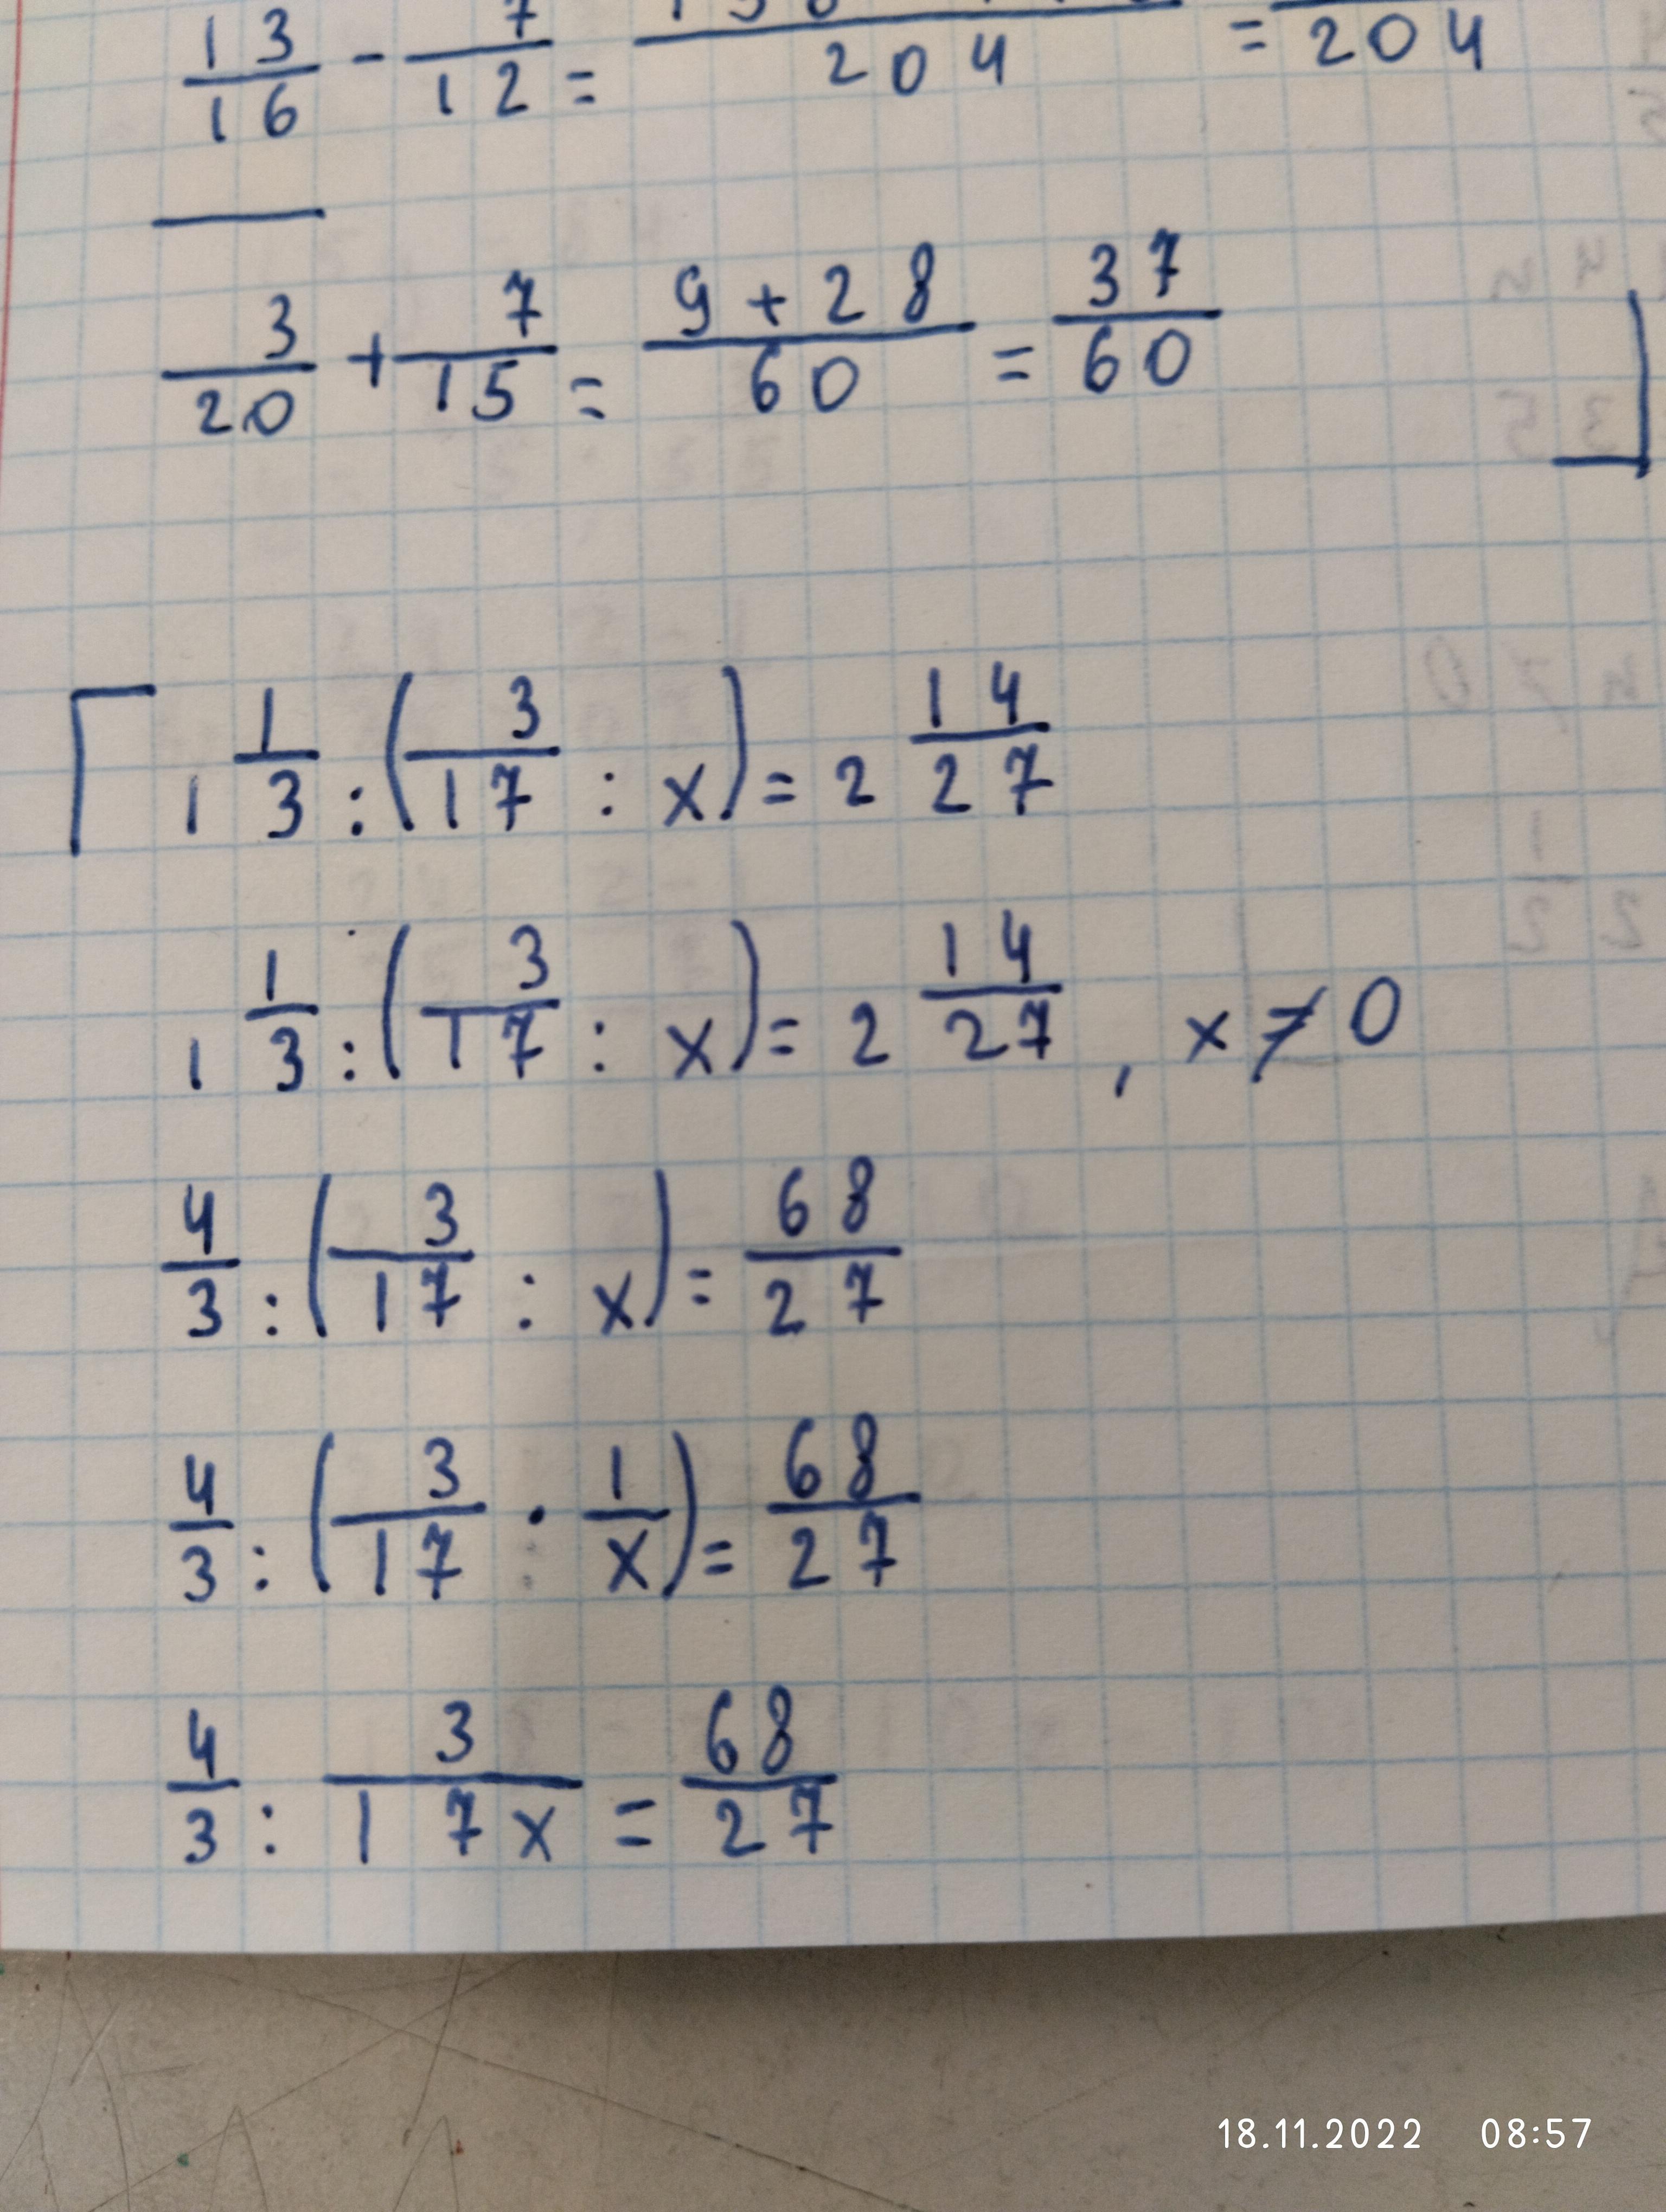 13/16 - 7/12 = /204 = /204
3/20 + 7/15 = 9+28/60 = 37/60
1 1/3 : (3/17 : x) = 2 14/27
1 1/3 : (3/17 : x) = 2 14/27 , x ≠ 0
4/3 : (3/17 : x) = 68/27
4/3 : (3/17 · 1/x) = 68/27
4/3 : 3/17x = 68/27
18.11.2022 08:57